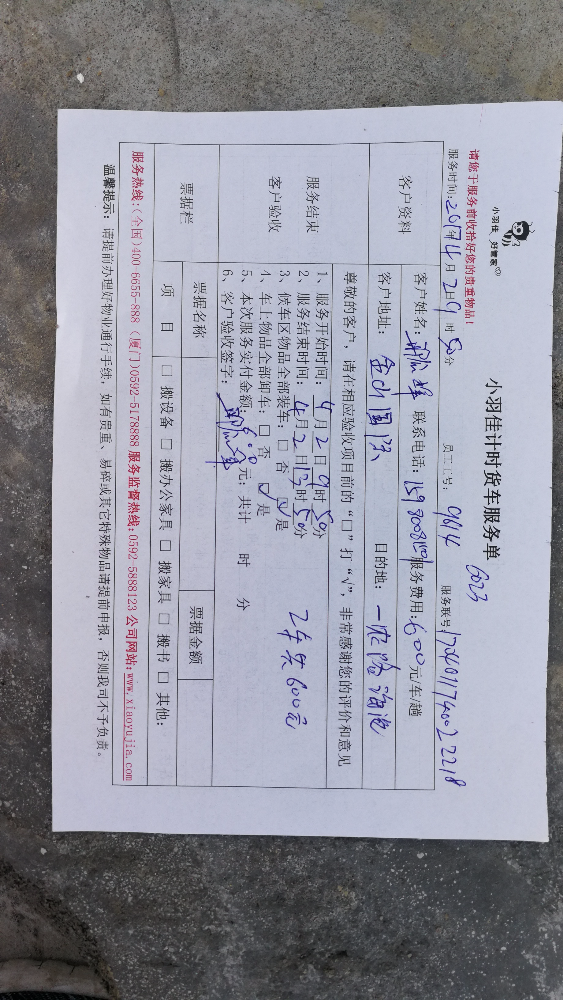 小羽佳 好管家
小羽佳计时货车服务单
请您于服务前收拾好您的贵重物品！
0023
服务时间：2017年4月2日9时50分 员工工号：0614 服务联号
客户资料
客户姓名： 联系电话： 服务费用：600元/车/趟
客户地址： 目的地：
服务结束
客户验收
尊敬的客户，请在相应验收项目前的“□”打“√”，非常感谢您的评价和意见
1、服务开始时间：4月2日9时50分
2、服务结束时间：4月2日13时50分
3、候车区物品全部装车：□ 否 ☑ 是
4、车上物品全部卸车：□ 否 ☑ 是
5、本次服务实付金额：600元；共计 时 分
6、客户验收签字：
2车共600元
票据栏
票据名称 票据金额
项 目 □ 搬设备 □ 搬办公家具 □ 搬家具 □ 搬书 □ 其他：
服务热线：(全国)400-6655-888 (厦门)0592-5178888 服务监督热线：0592-5888123 公司网站：www.xiaoyujia.com
温馨提示：请提前办理好物业通行手续，如有贵重、易碎或其它特殊物品请提前申报，否则我司不予负责。